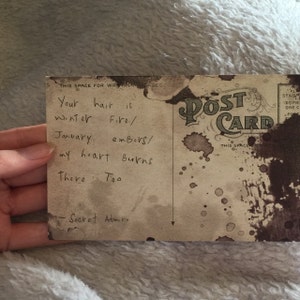 THIS SPACE FOR
Your hair is
winter fire/
January embers/
my heart burns
There Too
- Secret Admirer
POST
CARD
THIS